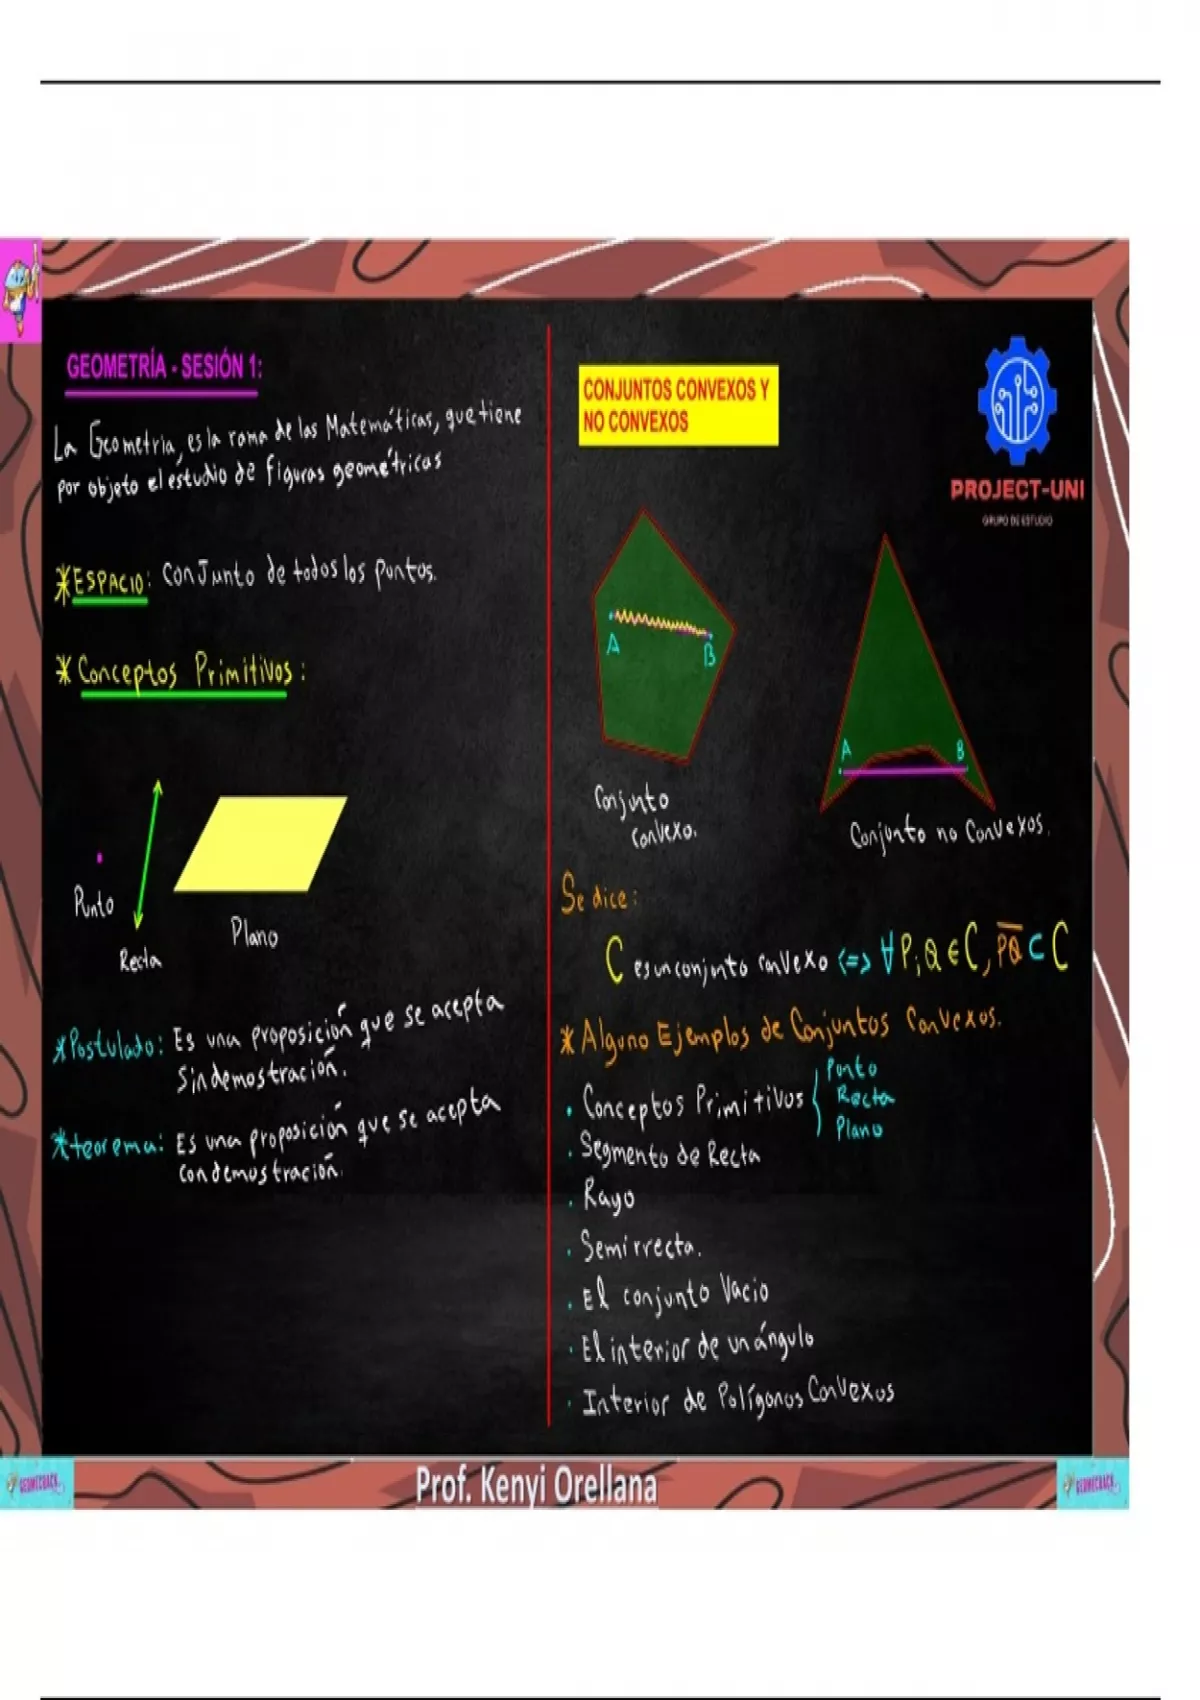 GEOMETRÍA - SESIÓN 1:
La Geometria, es la rama de las Matemáticas, que tiene
por objeto el estudio de figuras geométricas
*ESPACIO: Conjunto de todos los puntos.
*Conceptos Primitivos:
Punto
Recta
Plano
*Postulado: Es una proposición que se acepta
sin demostración.
*teorema: Es una proposición que se acepta
con demostración.
CONJUNTOS CONVEXOS Y
NO CONVEXOS
PROJECT-UNI
GRUPO DE ESTUDIO
A
B
A
B
Conjunto
convexo.
Conjunto no Convexos.
Se dice:
C es un conjunto convexo <=> ∀ P, Q ∈ C, P̅Q̅ ⊂ C
*Alguno Ejemplos de Conjuntos Convexos.
• Conceptos Primitivos { Punto
Recta
Plano
• Segmento de Recta
• Rayo
• Semirrecta.
• El conjunto Vacio
• El interior de un ángulo
• Interior de Polígonos Convexos
GEOMECRACK
Prof. Kenyi Orellana
GEOMECRACK